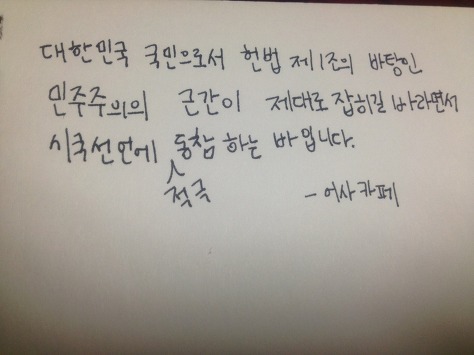 대한민국 국민으로서 헌법 제1조의 바탕인
민주주의의 근간이 제대로 잡히길 바라면서
시국선언에 동참 하는 바 입니다.
적극
- 어사카페